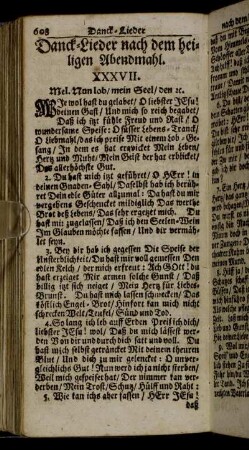 608 Danck-Lieder
Danck-Lieder nach dem hei-
ligen Abendmahl.
XXXVII.
Mel. Nun lob/ mein Seel/ den ꝛc.
Wie wol hast du gelabet/ O liebster JEsu!
deinen Gast/ Und mich so reich begabet/
Daß ich itzt fühle Freud und Rast/ O
wundersame Speise: O süsser Lebens-Tranck/
O Liebmahl/ das ich preise Mit einem Lob-Ge-
sang/ In dem es hat erquicket Mein Leben/
Hertz und Muht/ Mein Geist der hat erblicket/
Das allerhöchste Gut.
2. Du hast mich itzt geführet/ O HErr! in
deinen Gnaden-Sahl/ Daselbst hab ich berüh-
ret Dein edle Güter allzumal: Da hast du mir
vergebens Geschencket mildiglich Das werthe
Brot deß Lebens/ Das sehr ergetzt mich. Du
hast mir zugelassen/ Daß ich den Seelen-Wein
Im Glauben möchte fassen/ Und dir vermäh-
let seyn.
3. Bey dir hab ich gegessen Die Speise der
Unsterblichkeit/ Du hast mir voll gemessen Den
edlen Reich/ der mich erfreut: Ach GOtt! du
hast erzeiget Mir armen solche Gunst/ Daß
billig itzt sich neiget/ Mein Hertz für Liebes-
Brunst. Du hast mich lassen schmecken/ Das
köstlich Engel-Brot/ Hinfort kan mich nicht
schrecken Welt/ Teufel/ Sünd und Tod.
4. So lang ich leb auff Erden Preiß ich dich/
liebster JEsu! wol/ Daß du mich lässest wer-
den Von dir und durch dich satt und voll. Du
hast mich selbst geträncket Mit deinem theuren
Blut/ Und dich zu mir gelencket: O unver-
gleichlichs Gut! Nun werd ich ja nicht sterben/
Weil mich gespeiset hat/ Der nimmer kan ver-
derben/ Mein Trost/ Schutz/ Hülff und Raht:
5. Wie kan ichs aber fassen/ HErr JEsu!
daß